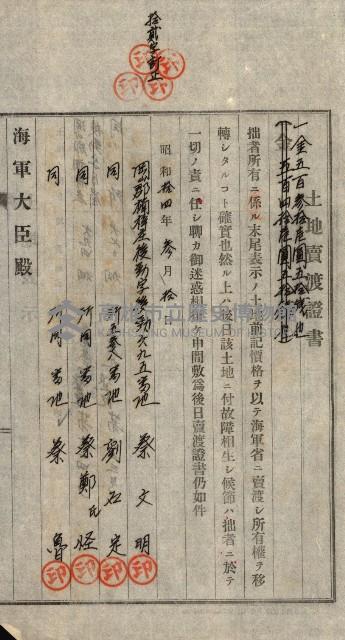 拾貳字訂正
土地賣渡證書
一金五百參拾陸圓五拾錢也
拙者所有ニ係ル末尾表示ノ土地前記價格ヲ以テ海軍省ニ賣渡シ所有權ヲ移
轉シタルコト確實也然ル上ハ後日該土地ニ付故障相生シ候節ハ拙者ニ於テ
一切ノ責ニ任シ聊カ御迷惑相掛申間敷為後日賣渡證書仍如件
昭和拾四年參月拾
岡郡 左 後勁 六九五番地 蔡文明
同 番地 劉石定
同 所 同番地 蔡鄭氏怪
同 所 同番地 蔡
海軍大臣殿
高雄市立歷史博物館
KAOHSIUNG MUSEUM OF HISTORY
印
印
印
印
印
印
印